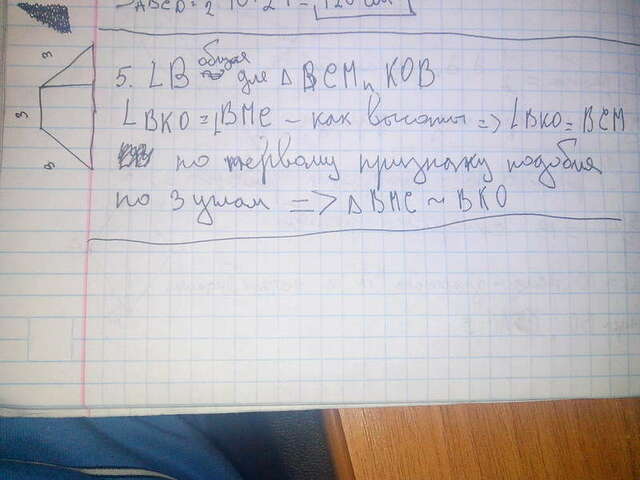 SABCD = 2 · 10 · 24 = 120 см
3
3
3
5. ∠B общая для △ BCM и KOB
∠BKO = ∠BMC - как высоты => ∠BKO = BCM
по первому признаку подобия
по 3 углам => △ BMC ~ BKO